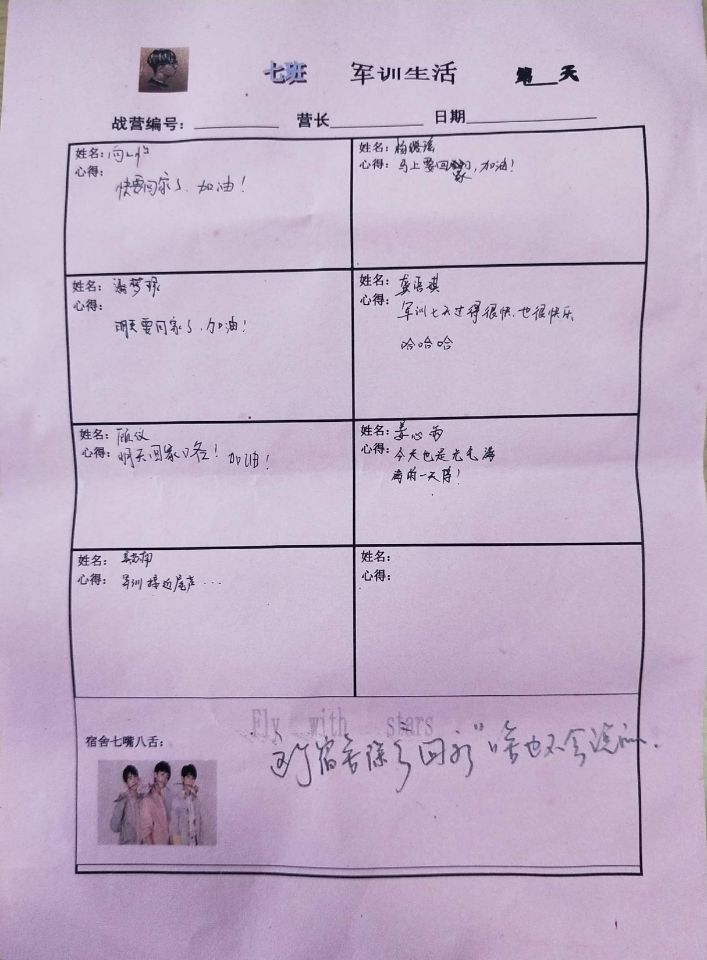 七班 军训生活 第__天
战营编号：________ 营长________ 日期________
姓名：
心得：
快要回家了、加油！
姓名：杨
心得：马上要回家，加油！
姓名：潘梦
心得：
明天要回家了、加油！
姓名：龚语琪
心得：
军训七天过得很快、也很快乐
哈哈哈
姓名：顾仪
心得：明天回家咯！加油！
姓名：姜心雨
心得：今天也是元气满
满的一天
姓名：
心得：军训接近尾声...
姓名：
心得：
Fly with stars
宿舍七嘴八舌：
这个宿舍除了"回家"啥也不会说